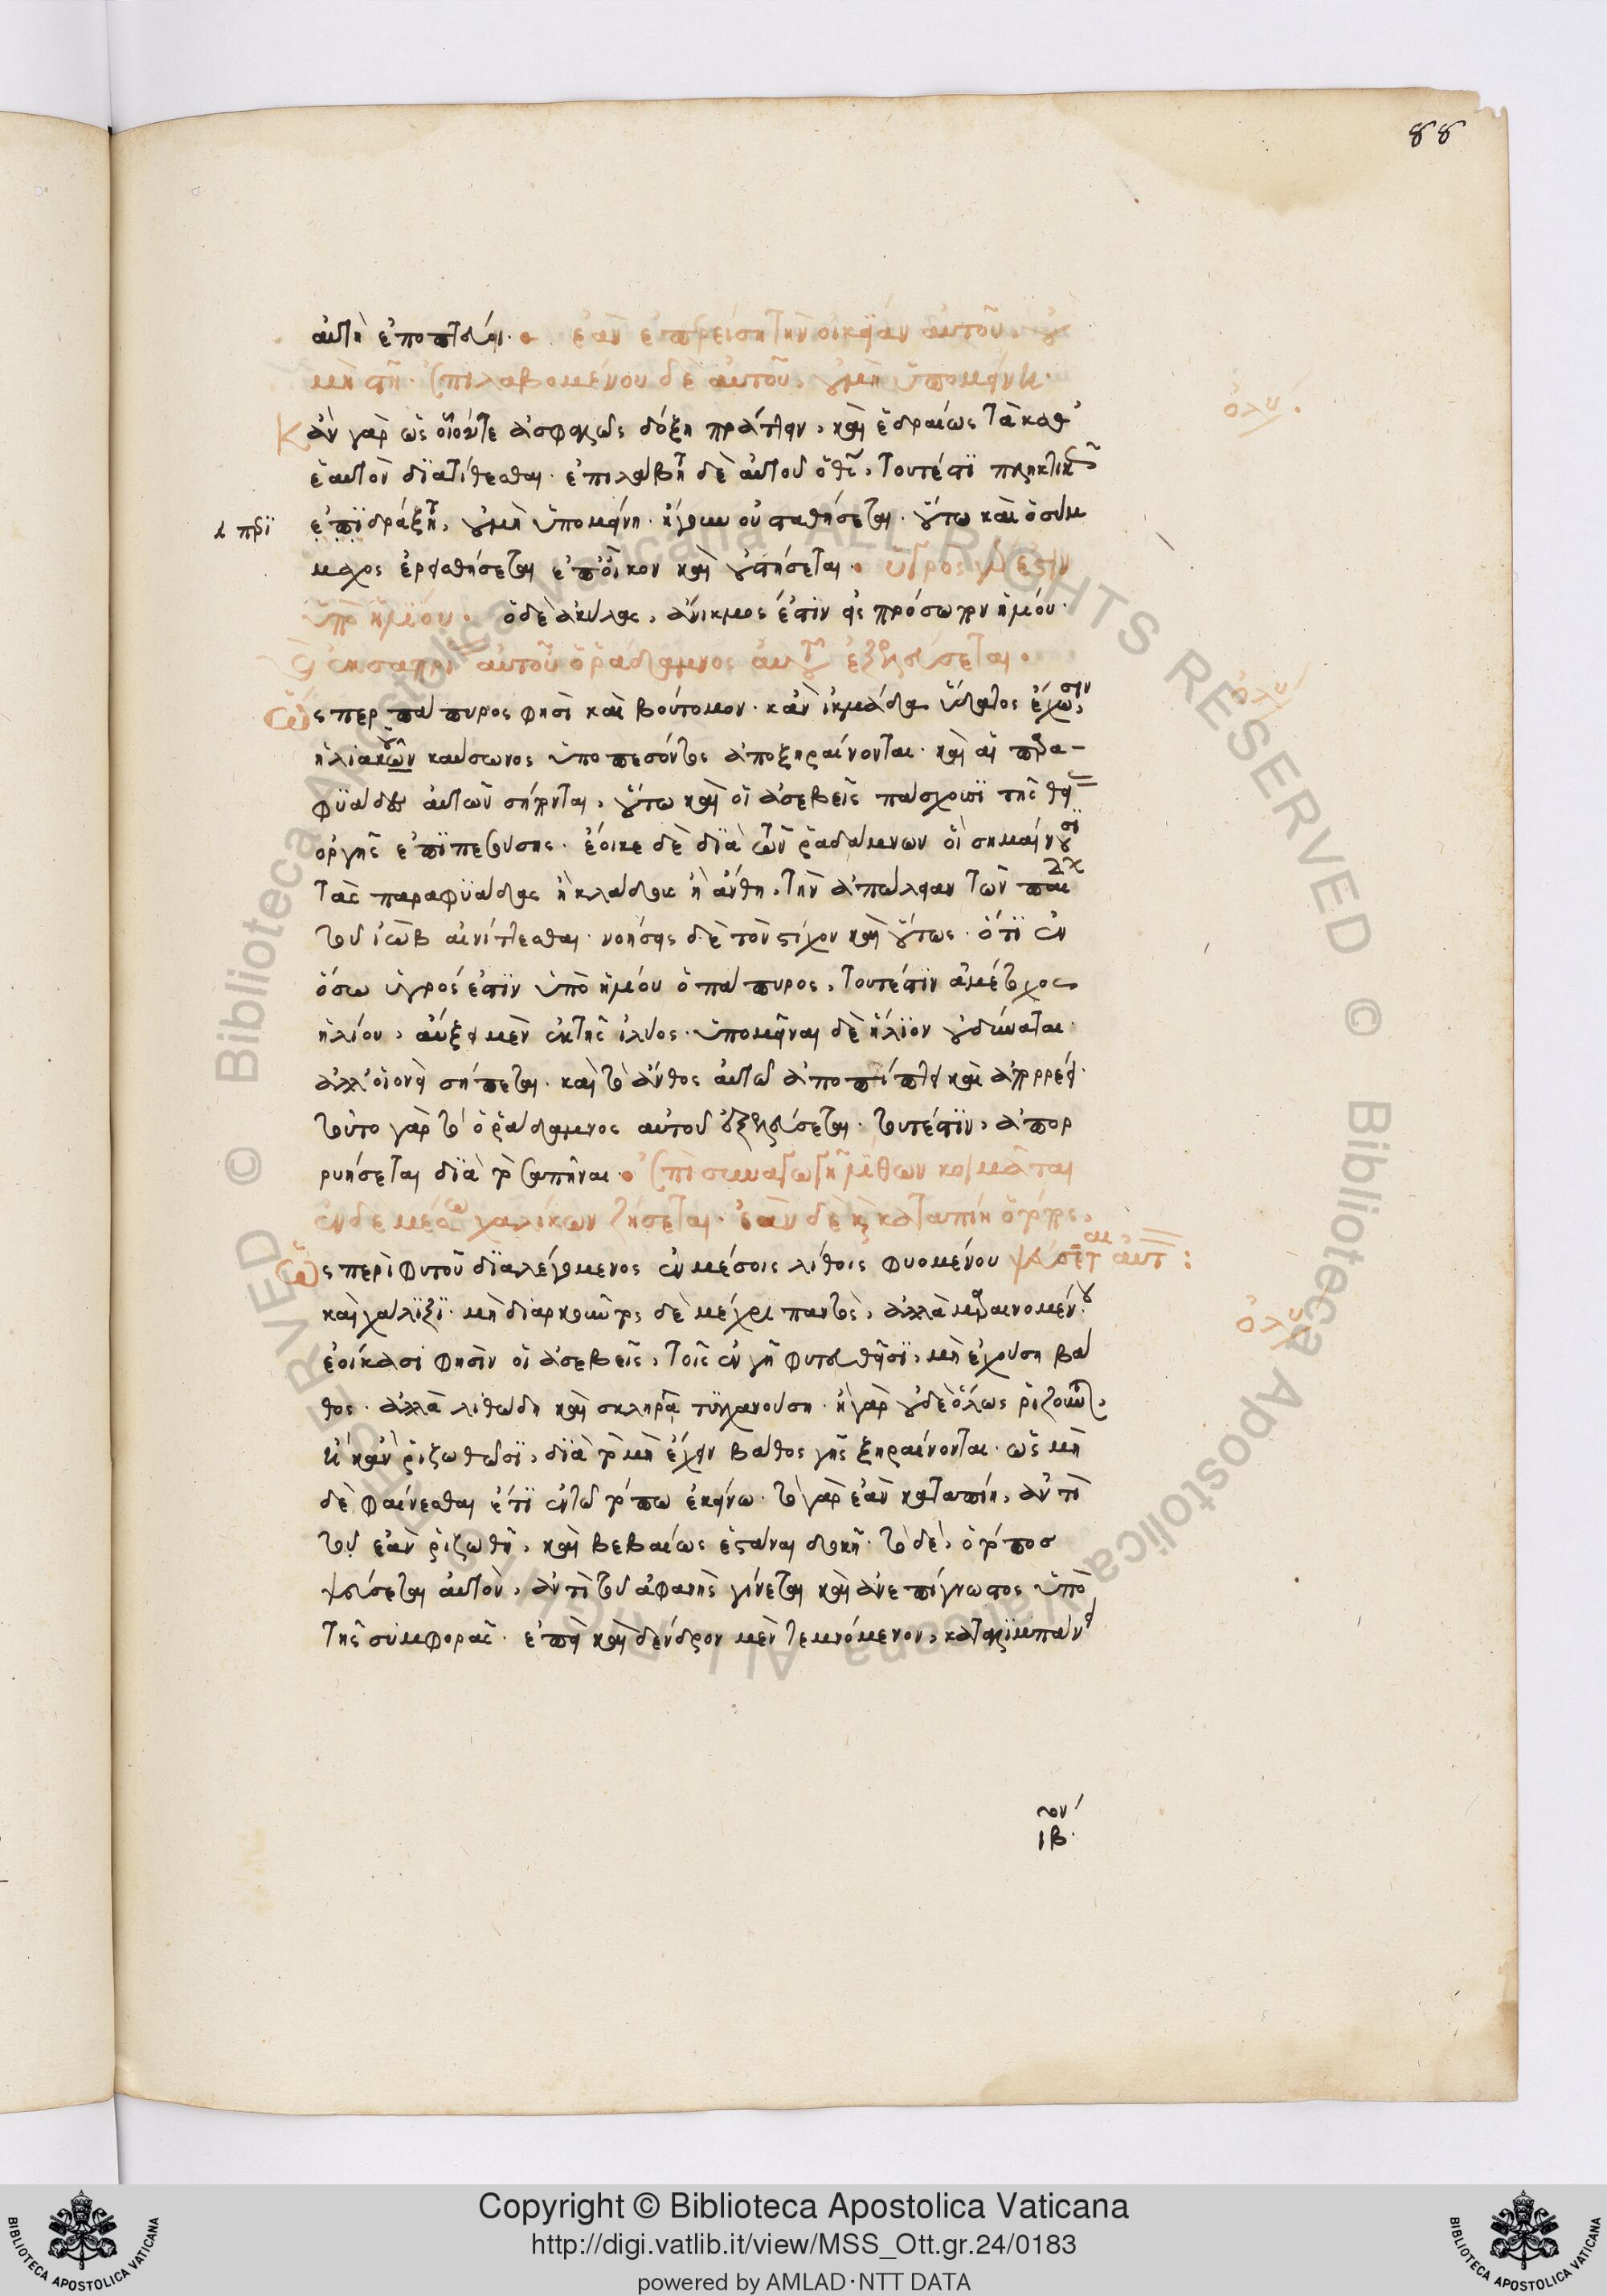 88
αὐτὴ ἐποπτεύει · ἐὰν ἐπερείσῃ τὴν οἰκίαν αὐτοῦ, οὐ
μὴ στῇ · ἐπιλαβομένου δὲ αὐτοῦ, οὐ μὴ ὑπομείνῃ ·
Κἂν γὰρ ὡς οἷόν τε ἀσφαλῶς δόξῃ πράττειν, καὶ ἑδραίως τὰ καθ'
ἑαυτὸν διατίθεσθαι · ἐπιλάβῃ δὲ αὐτοῦ ὁ θς, τουτέστι πληκτικῶς
ἐπιδράξῃ, οὐ μὴ ὑπομείνῃ · σταθήσεται · οὕτω καὶ ὁ σύμ
μαχος ἐπ' οἶκον καὶ οὐ στήσεται · ὑγρὸς γάρ ἐστιν
ὑπὸ ἡλίου · ὁ δὲ ἀκύλας, ἔστιν εἰς πρόσωπον ἡλίου ·
καὶ ἐκ σαπρίας αὐτοῦ ὁ ῥάδαμνος αὐτοῦ ἐξελεύσεται ·
Ὥσπερ πάπυρος φησὶ καὶ βούτομον · κἂν ἰκμάδα ὕδατος ἔχωσιν,
ἡλιακοῦ καύσωνος ὑποπεσόντος ἀποξηραίνονται · καὶ αἱ παρα-
φυάδες αὐτῶν σήπονται, οὕτω καὶ οἱ ἀσεβεῖς πάσχουσι τῆς θείας
ὀργῆς ἐπιπεσούσης · ἔοικε δὲ διὰ τῶν ῥαδάμνων οἳ σημαίνουσι
τὰς παραφυάδας ἢ κλάδους ἢ ἄνθη, τὴν ἀπώλειαν τῶν παίδων
τοῦ ἰὼβ αἰνίττεσθαι · νοήσεις δὲ τὸν στίχον καὶ οὕτως · ὅτι ἐν
ὅσῳ ὑγρός ἐστιν ὑπὸ ἡλίου ὁ πάπυρος, τουτέστιν ἀμέτοχος
ἡλίου, αὔξει μὲν ἐκ τῆς ἰλύος · ὑπομεῖναι δὲ ἥλιον οὐ δύναται ·
ἀλλ' οἱονεὶ σήπεται · καὶ τὸ ἄνθος αὐτοῦ ἀποπίπτει καὶ ἀπορρέει ·
τοῦτο γὰρ τὸ ὁ ῥάδαμνος αὐτοῦ ἐξελεύσεται · τουτέστιν, ἀπορ
ρυήσεται διὰ τὸ σαπῆναι · ἐπὶ συναγωγὴν λίθων κοιμᾶται
ἐν δὲ μέσῳ χαλίκων ζήσεται · ἐὰν δὲ καταπίῃ ὁ τόπος,
Ὡς περὶ φυτοῦ διαλεγόμενος ἐν μέσοις λίθοις φυομένου ψεύσεται αὐτόν :
καὶ χάλιξι · μὴ διαρκοῦντος δὲ μέχρι παντὸς, ἀλλὰ μαραινομένου ·
ἐοίκασί φησιν οἱ ἀσεβεῖς, τοῖς ἐν γῇ φυτευθεῖσι, μὴ ἐχούσῃ βά
θος · ἀλλὰ λιθώδη καὶ σκληρᾷ τυγχανούσῃ · ἢ γὰρ οὐδὲ ὅλως ῥιζοῦνται,
ἢ κἂν ῥιζωθῶσι, διὰ τὸ μὴ ἔχειν βάθος γῆς ξηραίνονται · ὡς μὴ
δὲ φαίνεσθαι ἔτι ἐν τῷ τόπῳ ἐκείνῳ · τὸ γὰρ ἐὰν καταπίῃ, ἀντὶ
τοῦ ἐὰν ῥιζωθῇ, καὶ βεβαίως ἑστάναι δοκῇ · τὸ δὲ, ὁ τόπος
ψεύσεται αὐτὸν, ἀντὶ τοῦ ἀφανὴς γίνεται καὶ ἀνεπίγνωστος ὑπὸ
τῆς συμφορᾶς · ἐπεὶ καὶ δένδρον μὲν τεμνόμενον, καταλιμπάνει
ιβ ·
Copyright © Biblioteca Apostolica Vaticana
http://digi.vatlib.it/view/MSS_Ott.gr.24/0183
powered by AMLAD·NTT DATA